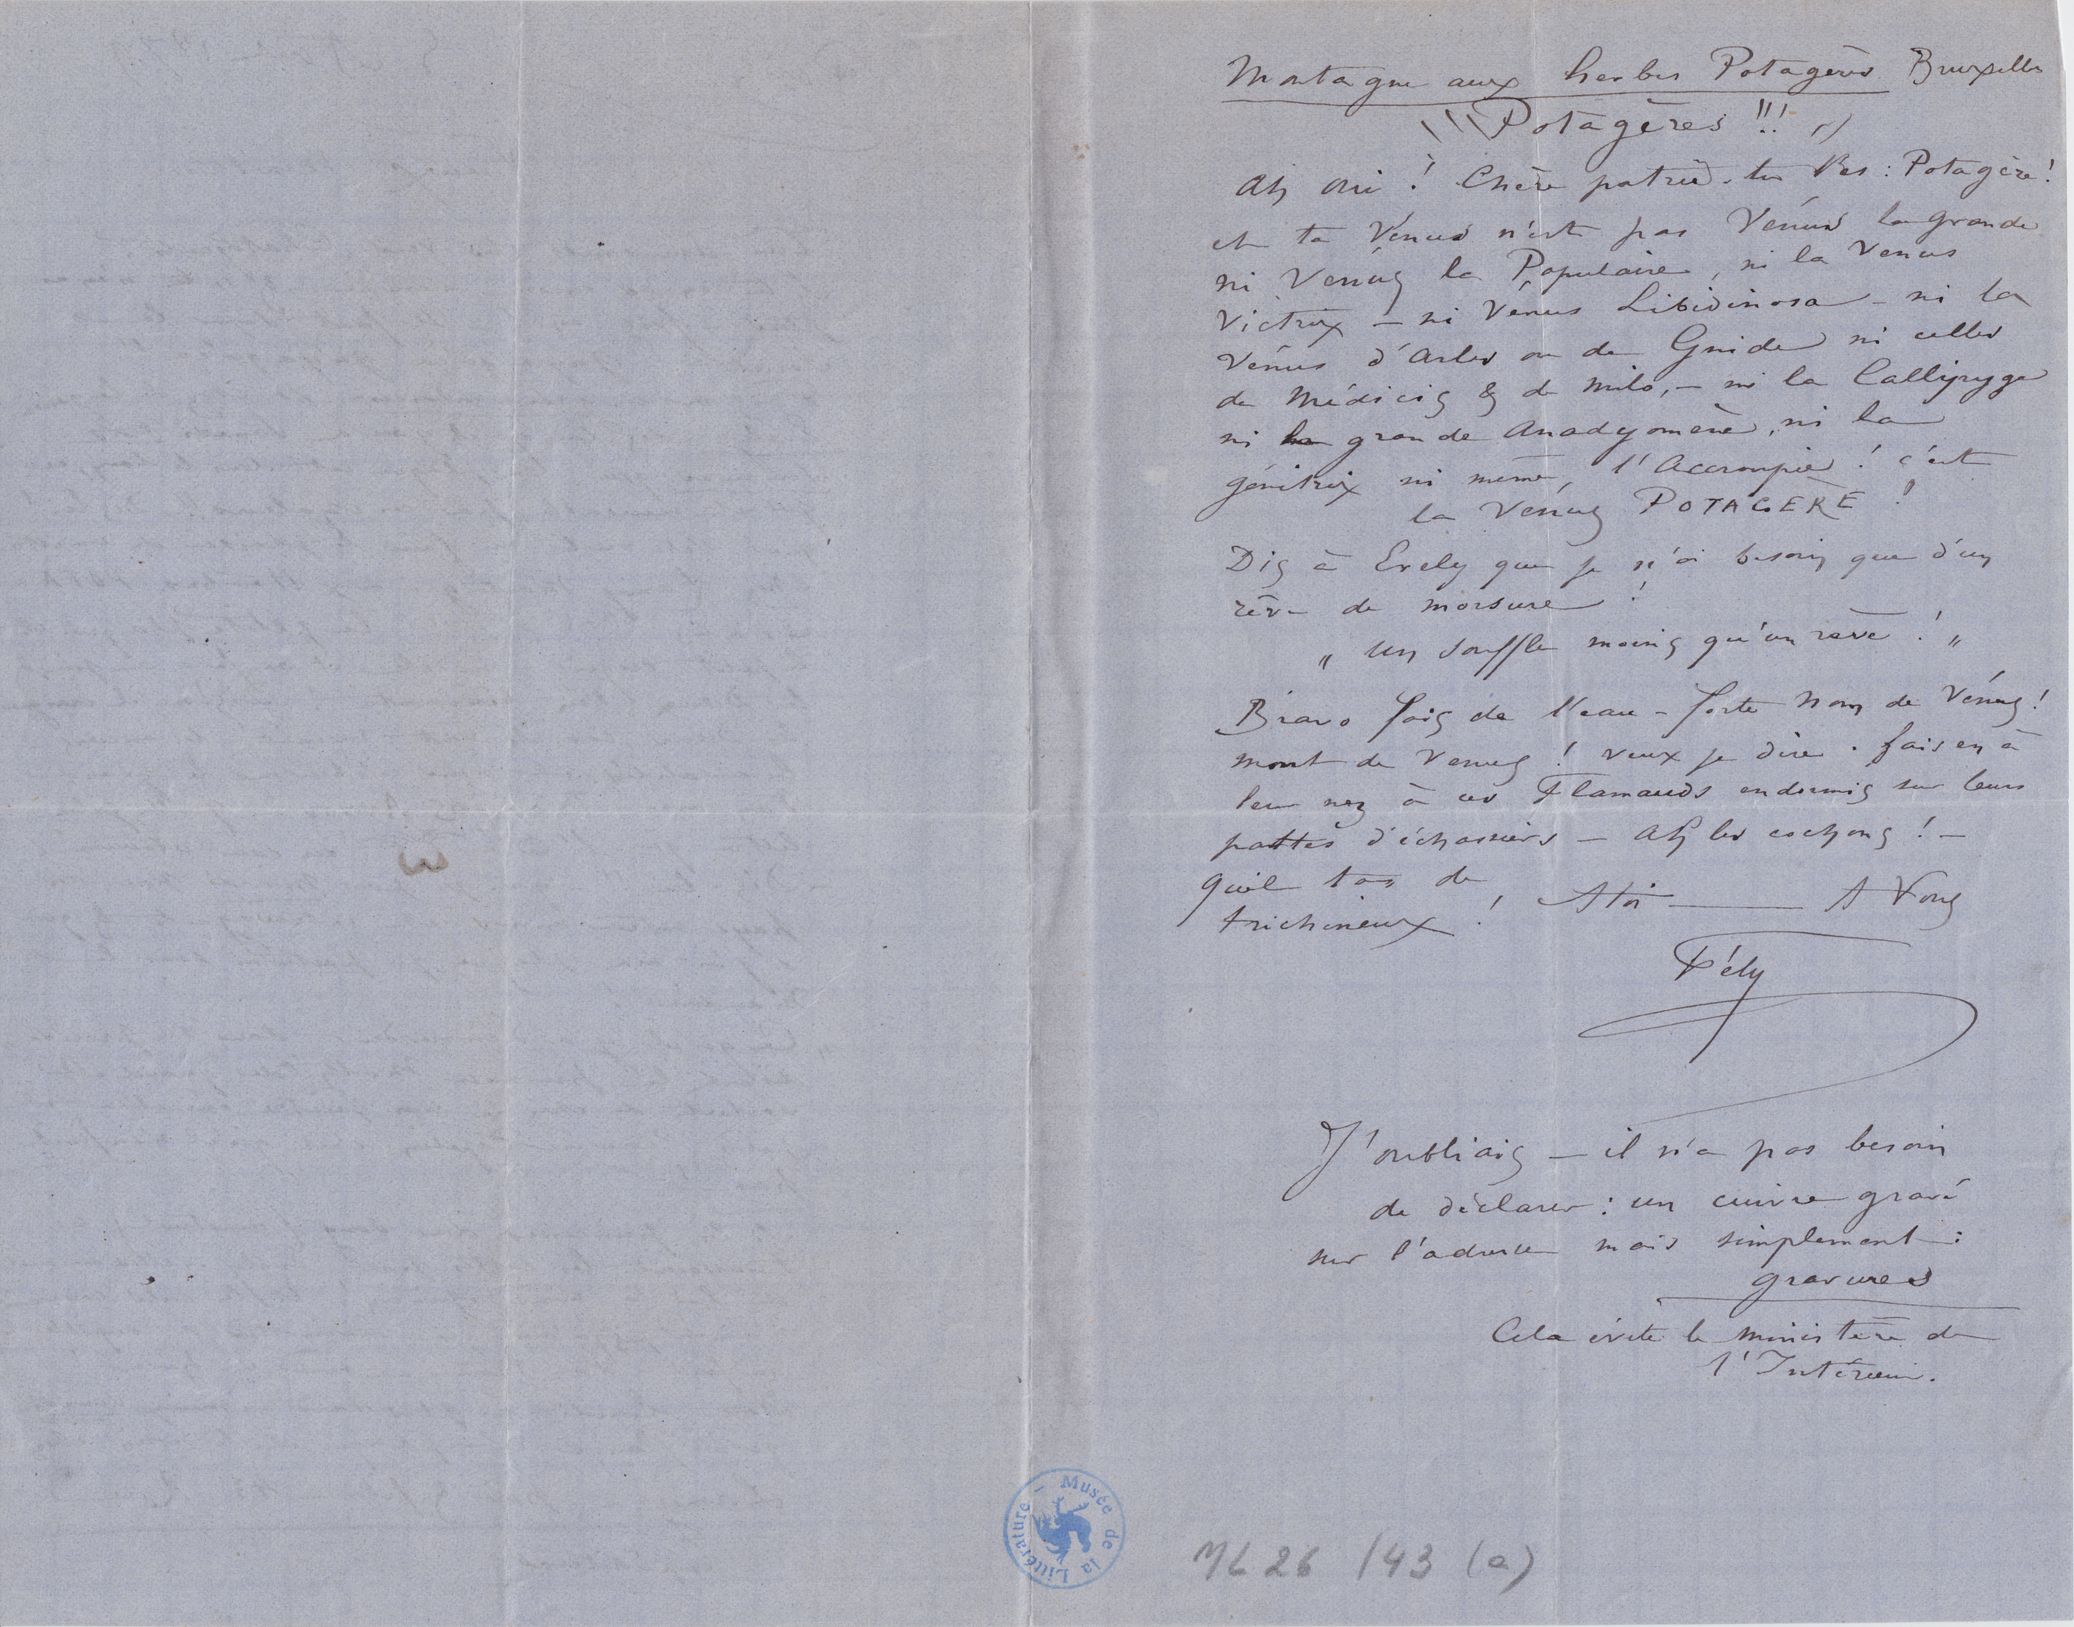 Montagne aux herbes Potagères Bruxelles
\\\Potagères !!! //
Ah oui ! Chère patrie. tu es : Potagère !
et ta Vénus n'est pas Vénus la grande
ni Vénus la Populaire, ni la Venus
Victrix – ni Vénus Libidinosa – ni la
Vénus d'Arles ou de Gnide ni celles
de Médicis & de Milo, – ni la Callipyge
ni la grande Anadyomène, ni la
génitrix ni même, l'Accroupie ! c'est
la Vénus POTAGÈRE !
Dis à Evely que je n'ai besoin que d'un
rêve de morsure !
„ Un souffle moins qu'un rêve ! „
Bravo fais de l'eau-forte nom de Vénus !
mont de Venus ! veux je dire. fais en à
leur nez à ces Flamands endormis sur leurs
pattes d'échassiers – Ah les cochons ! –
Quel tas de
trichineux ! A toi — A Vous
Fély
J'oubliais – il n'a pas besoin
de déclarer : un cuivre gravé
sur l'adresse mais simplement :
gravures
Cela évite le ministère de
l'Intérieur.
Musée de la Littérature –
ML 26 /43 (a)